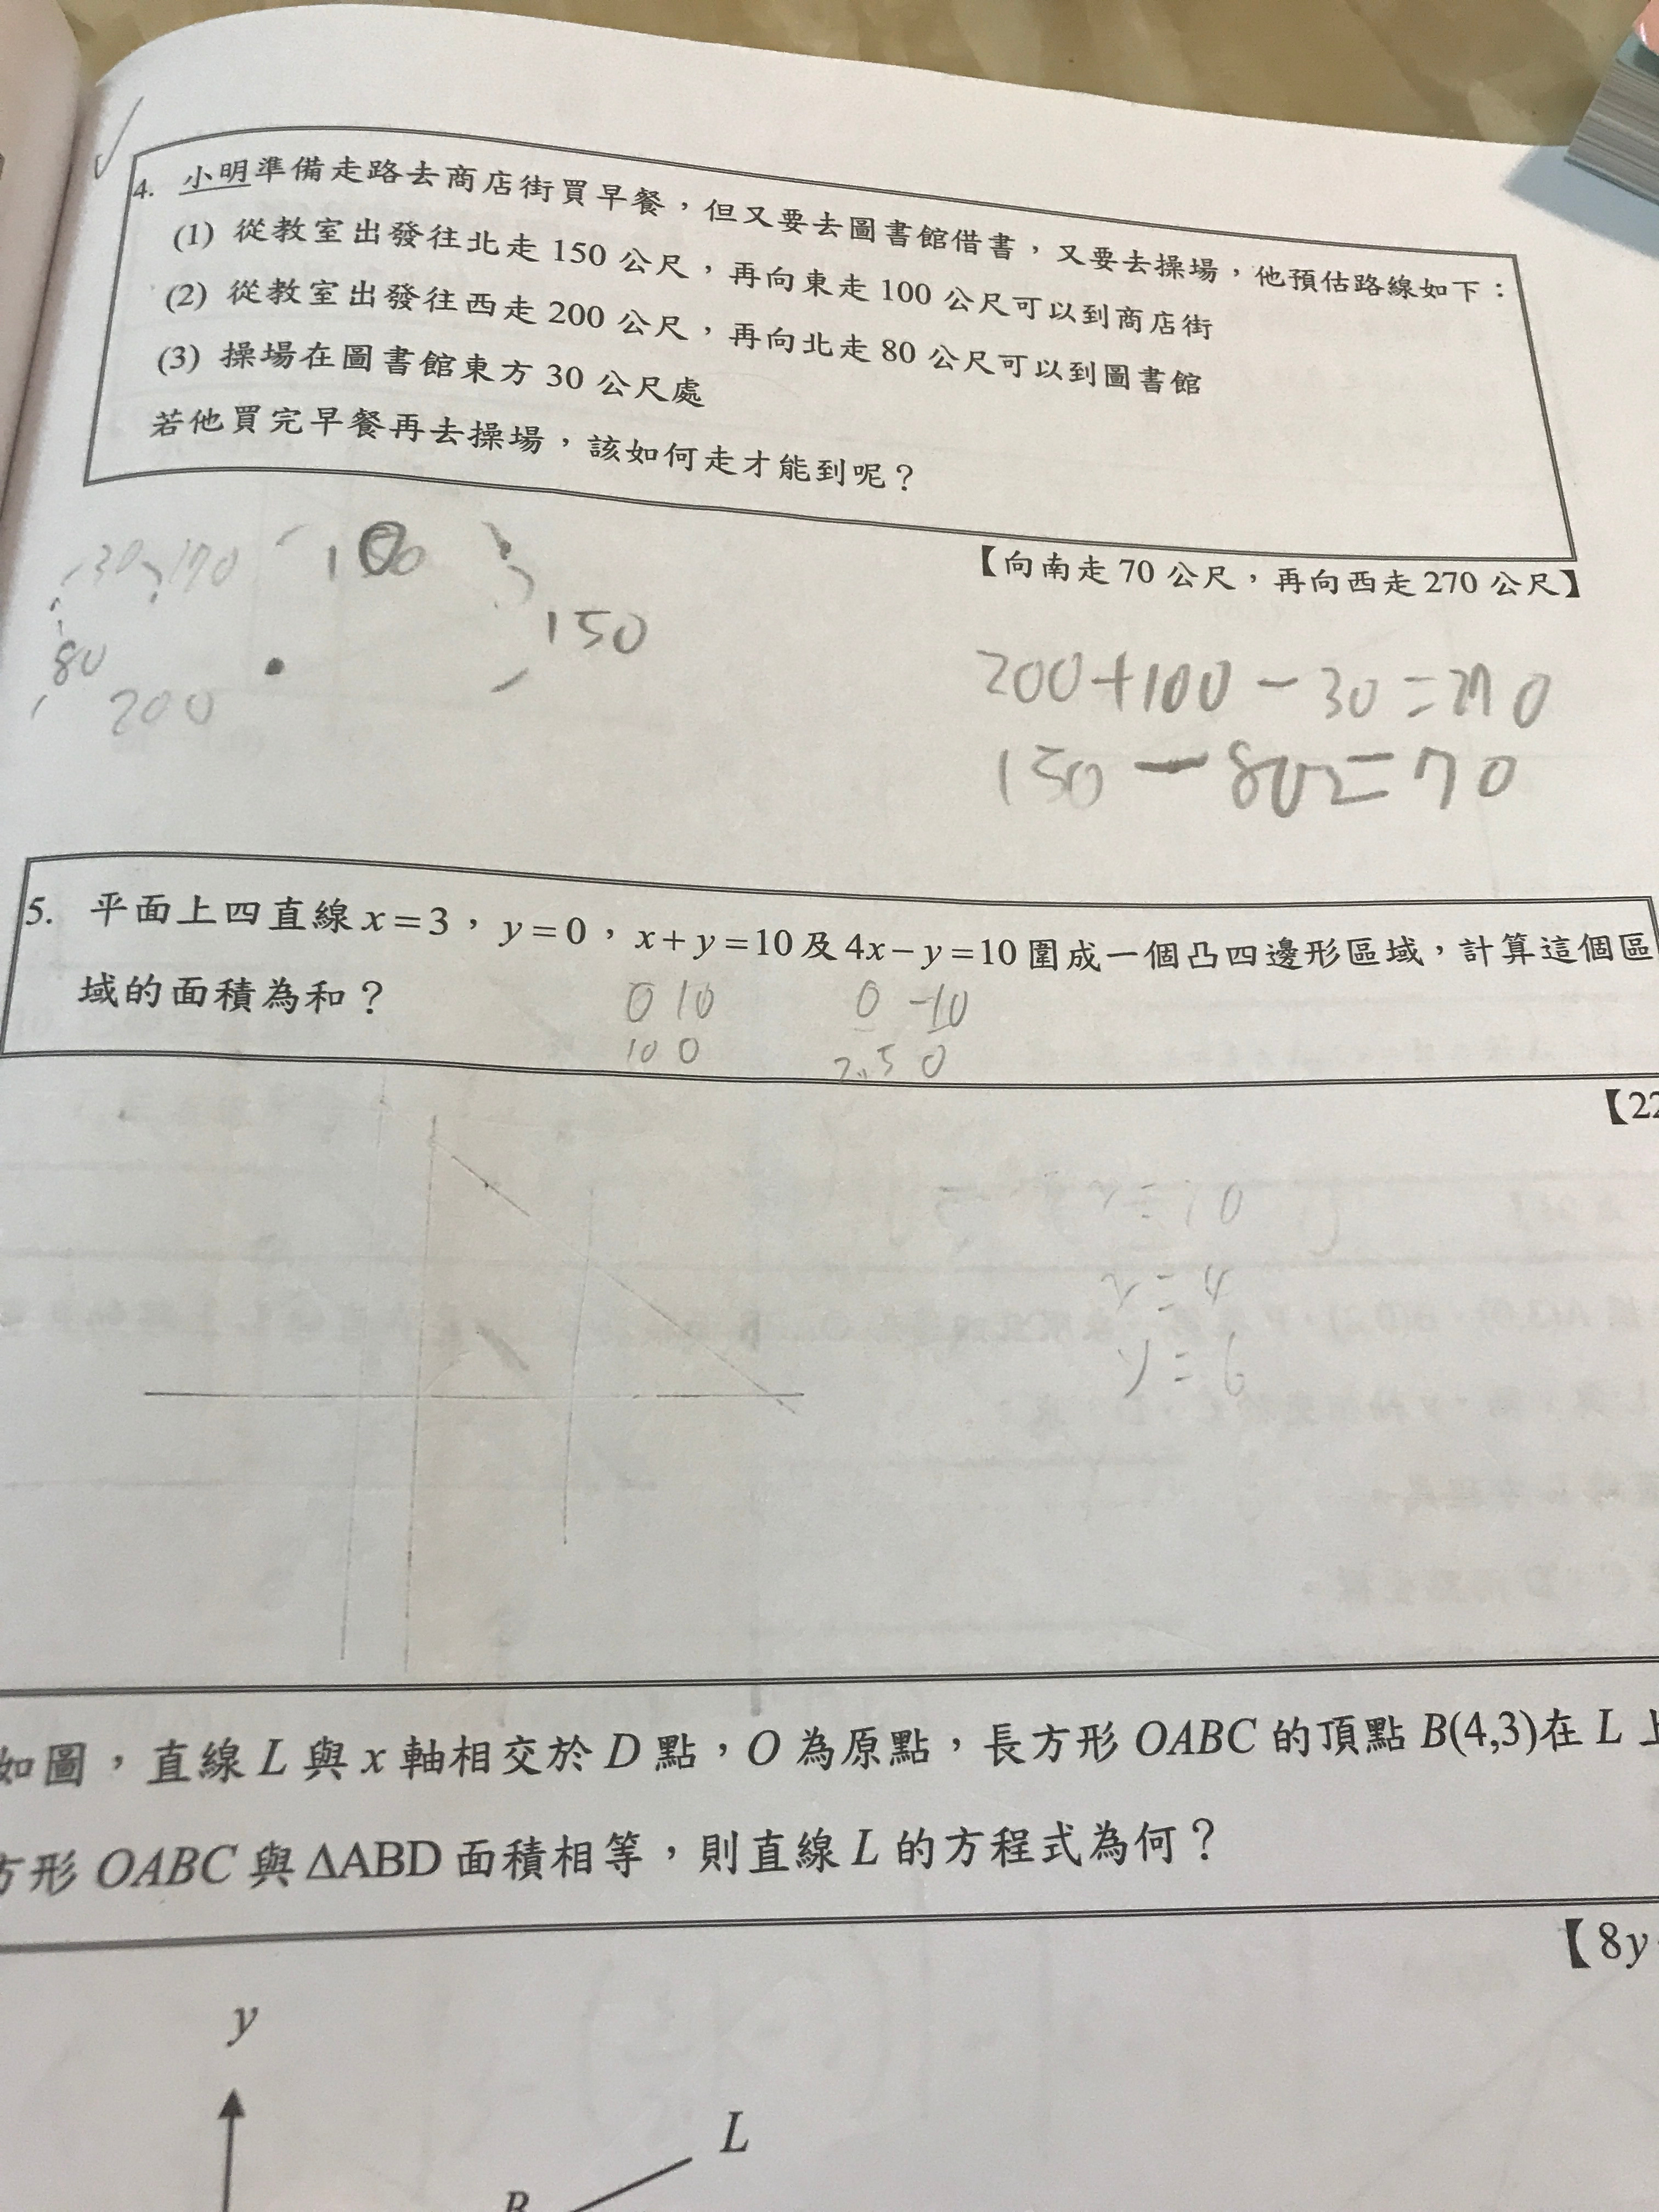 4. 小明準備走路去商店街買早餐，但又要去圖書館借書，又要去操場，他預估路線如下：
(1) 從教室出發往北走 150 公尺，再向東走 100 公尺可以到商店街
(2) 從教室出發往西走 200 公尺，再向北走 80 公尺可以到圖書館
(3) 操場在圖書館東方 30 公尺處
若他買完早餐再去操場，該如何走才能到呢？
【向南走 70 公尺，再向西走 270 公尺】
30 170
150
80
200
200+100-30=270
150-80=70
5. 平面上四直線 x=3，y=0，x+y=10 及 4x-y=10 圍成一個凸四邊形區域，計算這個區
域的面積為和？
0 10 0 -10
10 0 2.5 0
【22
x=4
y=6
如圖，直線 L 與 x 軸相交於 D 點，O 為原點，長方形 OABC 的頂點 B(4,3)在 L 上
方形 OABC 與 ΔABD 面積相等，則直線 L 的方程式為何？
【8y
y
L
B